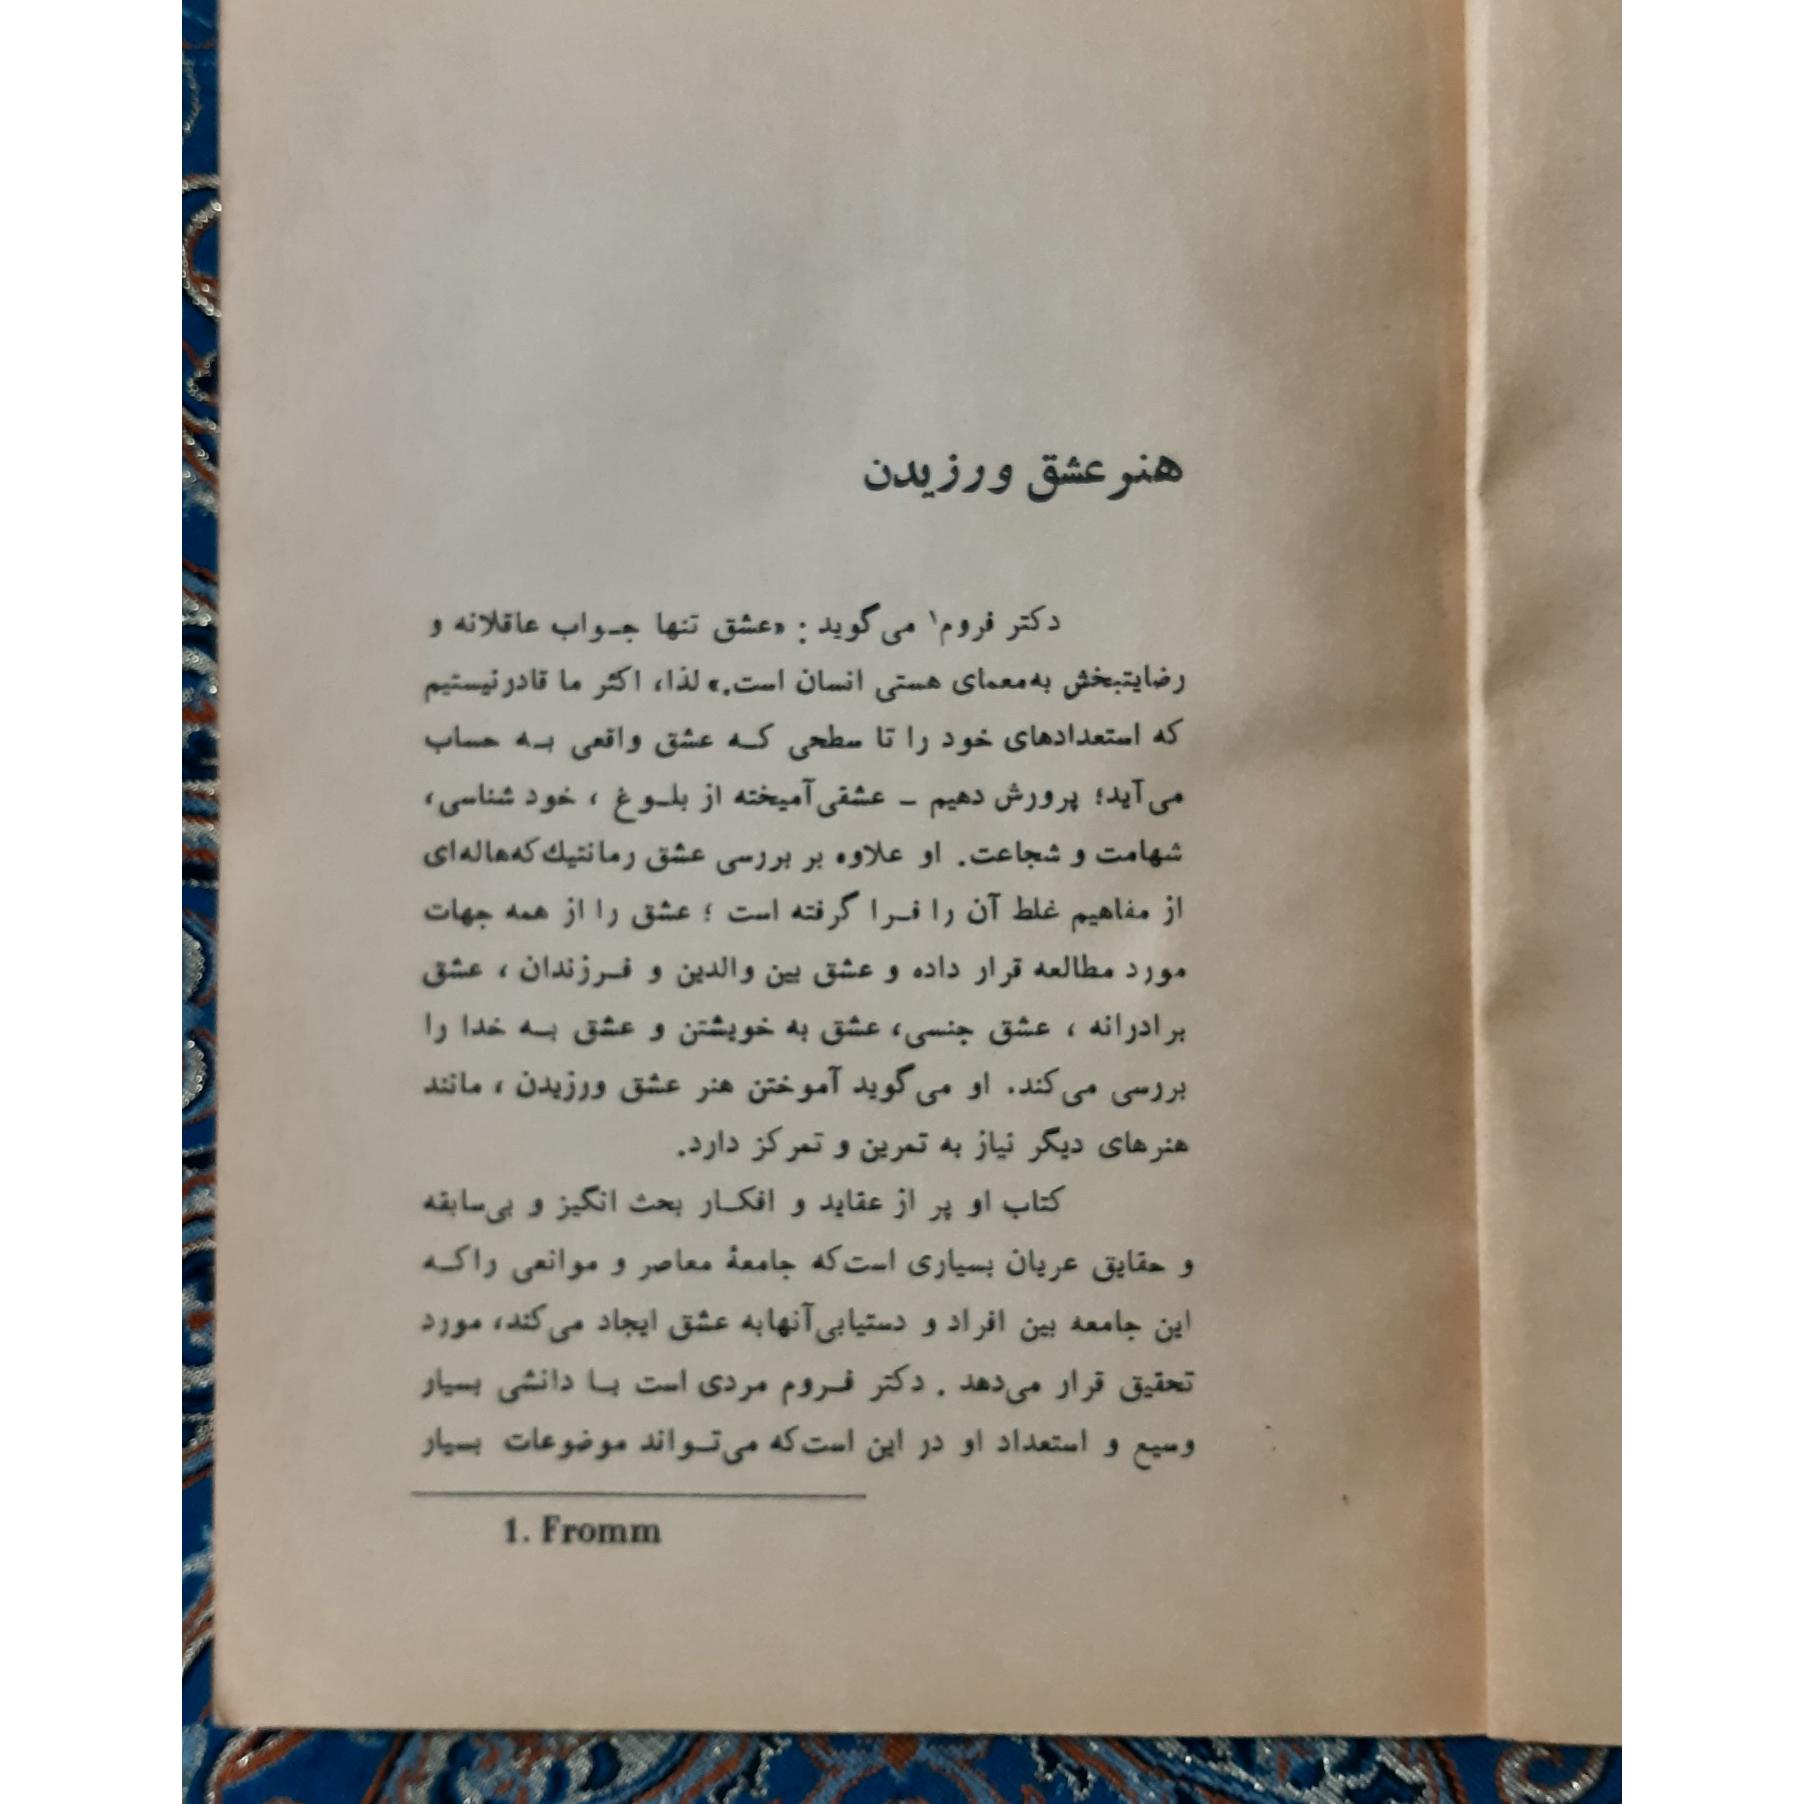 هنر عشق ورزیدن
دکتر فروم۱ می‌گوید: «عشق تنها جـواب عاقلانه و
رضایتبخش به‌معمای هستی انسان است.» لذا، اکثر ما قادرنیستیم
که استعدادهای خود را تا سطحی کـه عشق واقعی بـه حساب
می‌آید؛ پرورش دهیم ـ عشقی‌آمیخته از بلـوغ ، خود شناسی،
شهامت و شجاعت. او علاوه بر بررسی عشق رمانتیك‌که‌هاله‌ای
از مفاهیم غلط آن را فـرا گرفته است ؛ عشق را از همه جهات
مورد مطالعه قرار داده و عشق بین والدین و فـرزندان ، عشق
برادرانه ، عشق جنسی، عشق به خویشتن و عشق بـه خدا را
بررسی می‌کند. او می‌گوید آموختن هنر عشق ورزیدن ، مانند
هنرهای دیگر نیاز به تمرین و تمرکز دارد.
کتاب او پر از عقاید و افکـار بحث انگیز و بی‌سابقه
و حقایق عریان بسیاری است‌که جامعهٔ معاصر و موانعی راکـه
این جامعه بین افراد و دستیابی‌آنهابه عشق ایجاد می‌کند، مورد
تحقیق قرار می‌دهد . دکتر فـروم مردی است بـا دانشی بسیار
وسیع و استعداد او در این است‌که می‌تـواند موضوعات بسیار
1. Fromm